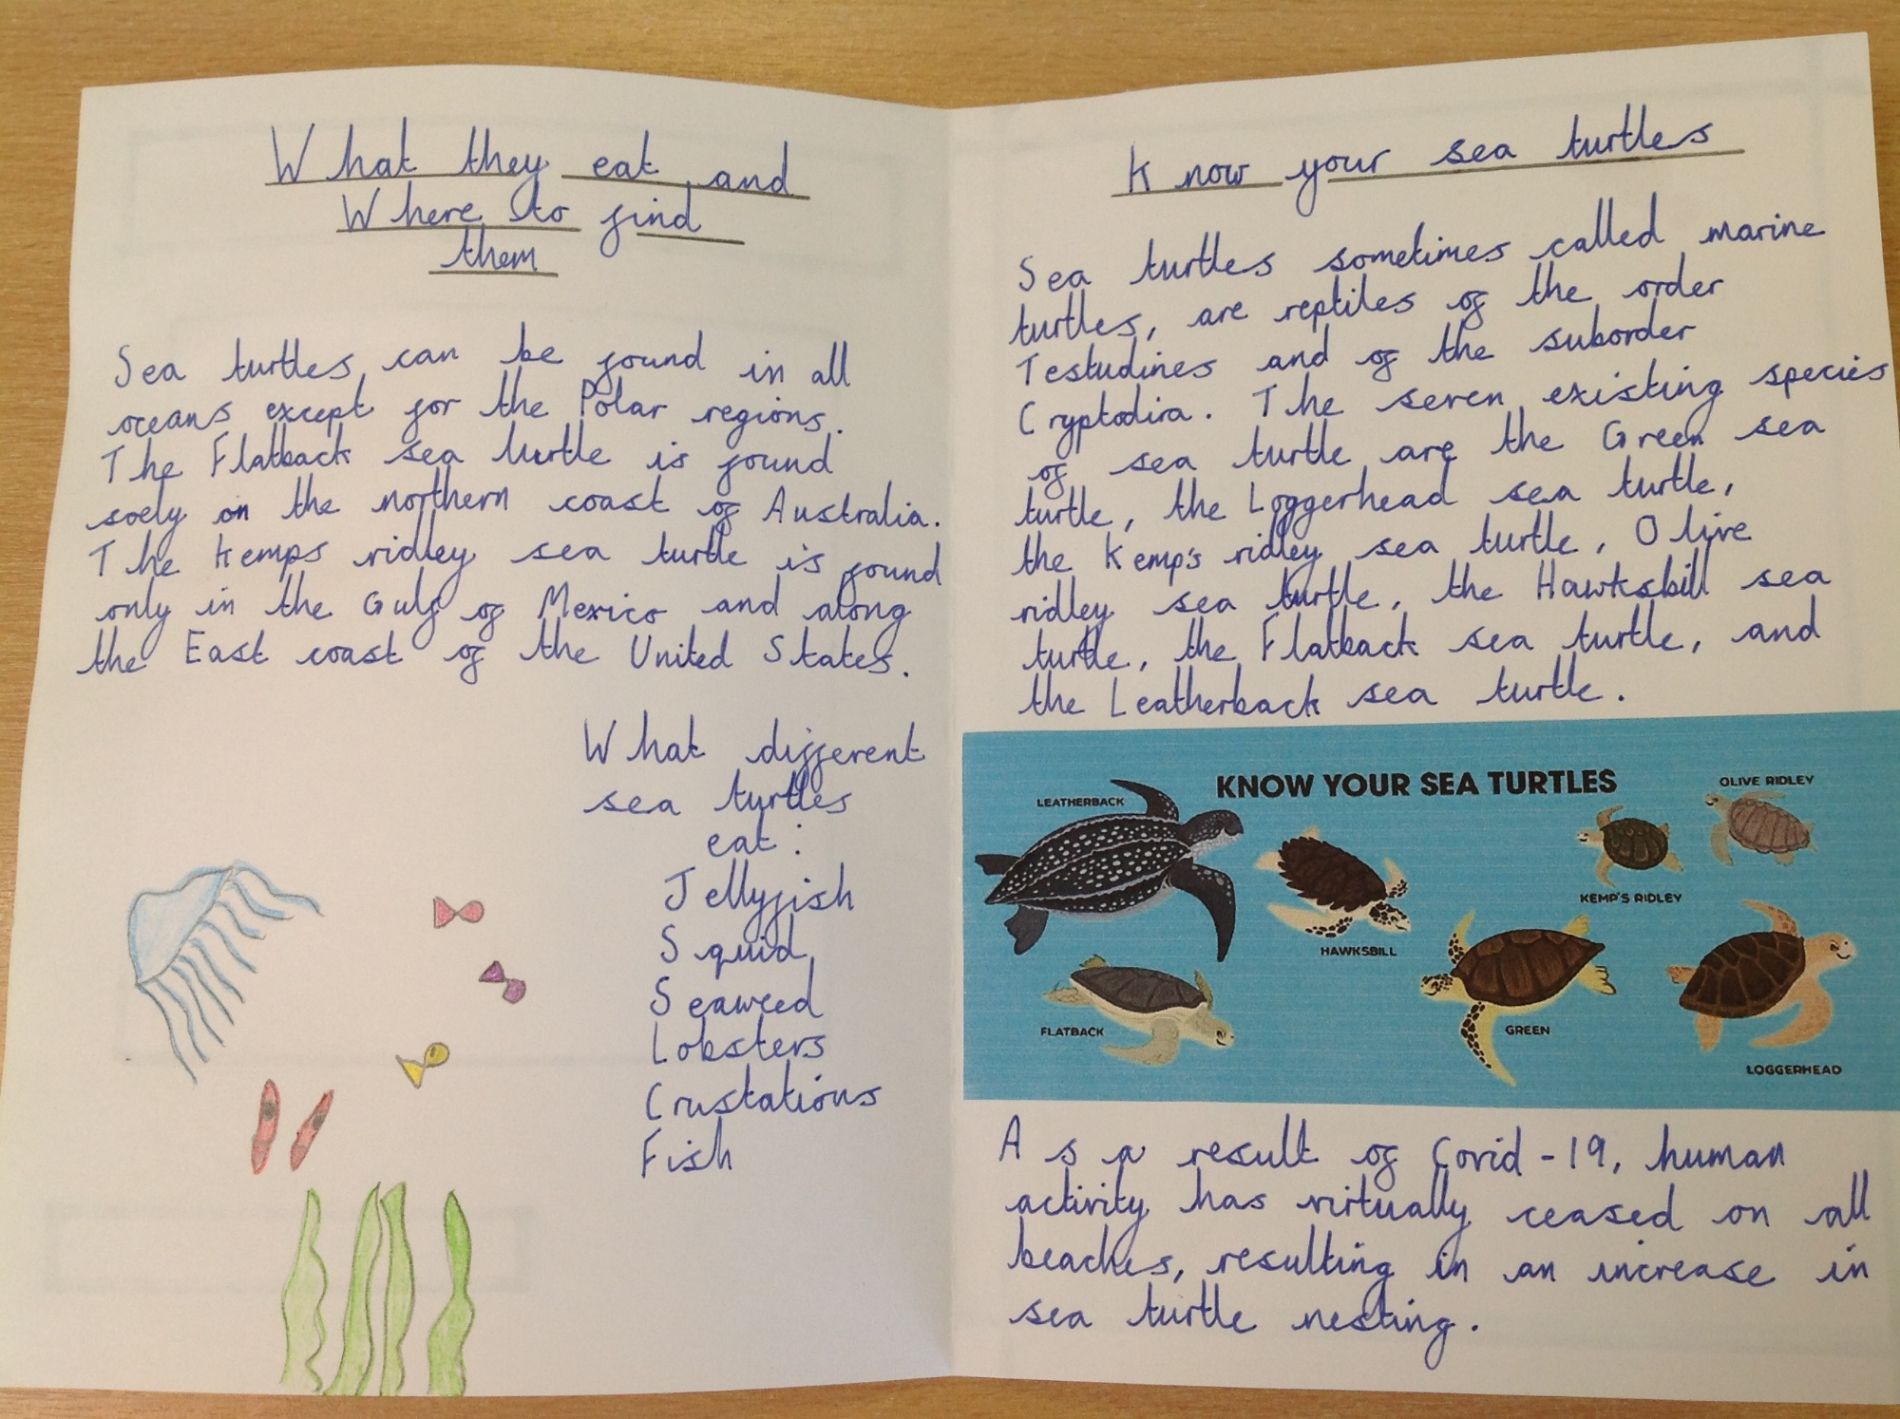 What they eat and
Where to find
them
Sea turtles can be found in all
oceans except for the Polar regions.
The Flatback sea turtle is found
soely on the northern coast of Australia.
The Kemps ridley sea turtle is found
only in the Gulf of Mexico and along
the East coast of the United States.
What different
sea turtles
eat:
Jellyfish
Squid
Seaweed
Lobsters
Crustations
Fish
Know your sea turtles
Sea turtles sometimes called marine
turtles, are reptiles of the order
Testudines and of the suborder
Cryptodira. The seven existing species
of sea turtle are the Green sea
turtle, the Loggerhead sea turtle,
the Kemp's ridley sea turtle, Olive
ridley sea turtle, the Hawksbill sea
turtle, the Flatback sea turtle, and
the Leatherback sea turtle.
KNOW YOUR SEA TURTLES
LEATHERBACK
OLIVE RIDLEY
KEMP'S RIDLEY
HAWKSBILL
FLATBACK
GREEN
LOGGERHEAD
As a result of Covid-19, human
activity has virtually ceased on all
beaches, resulting in an increase in
sea turtle nesting.